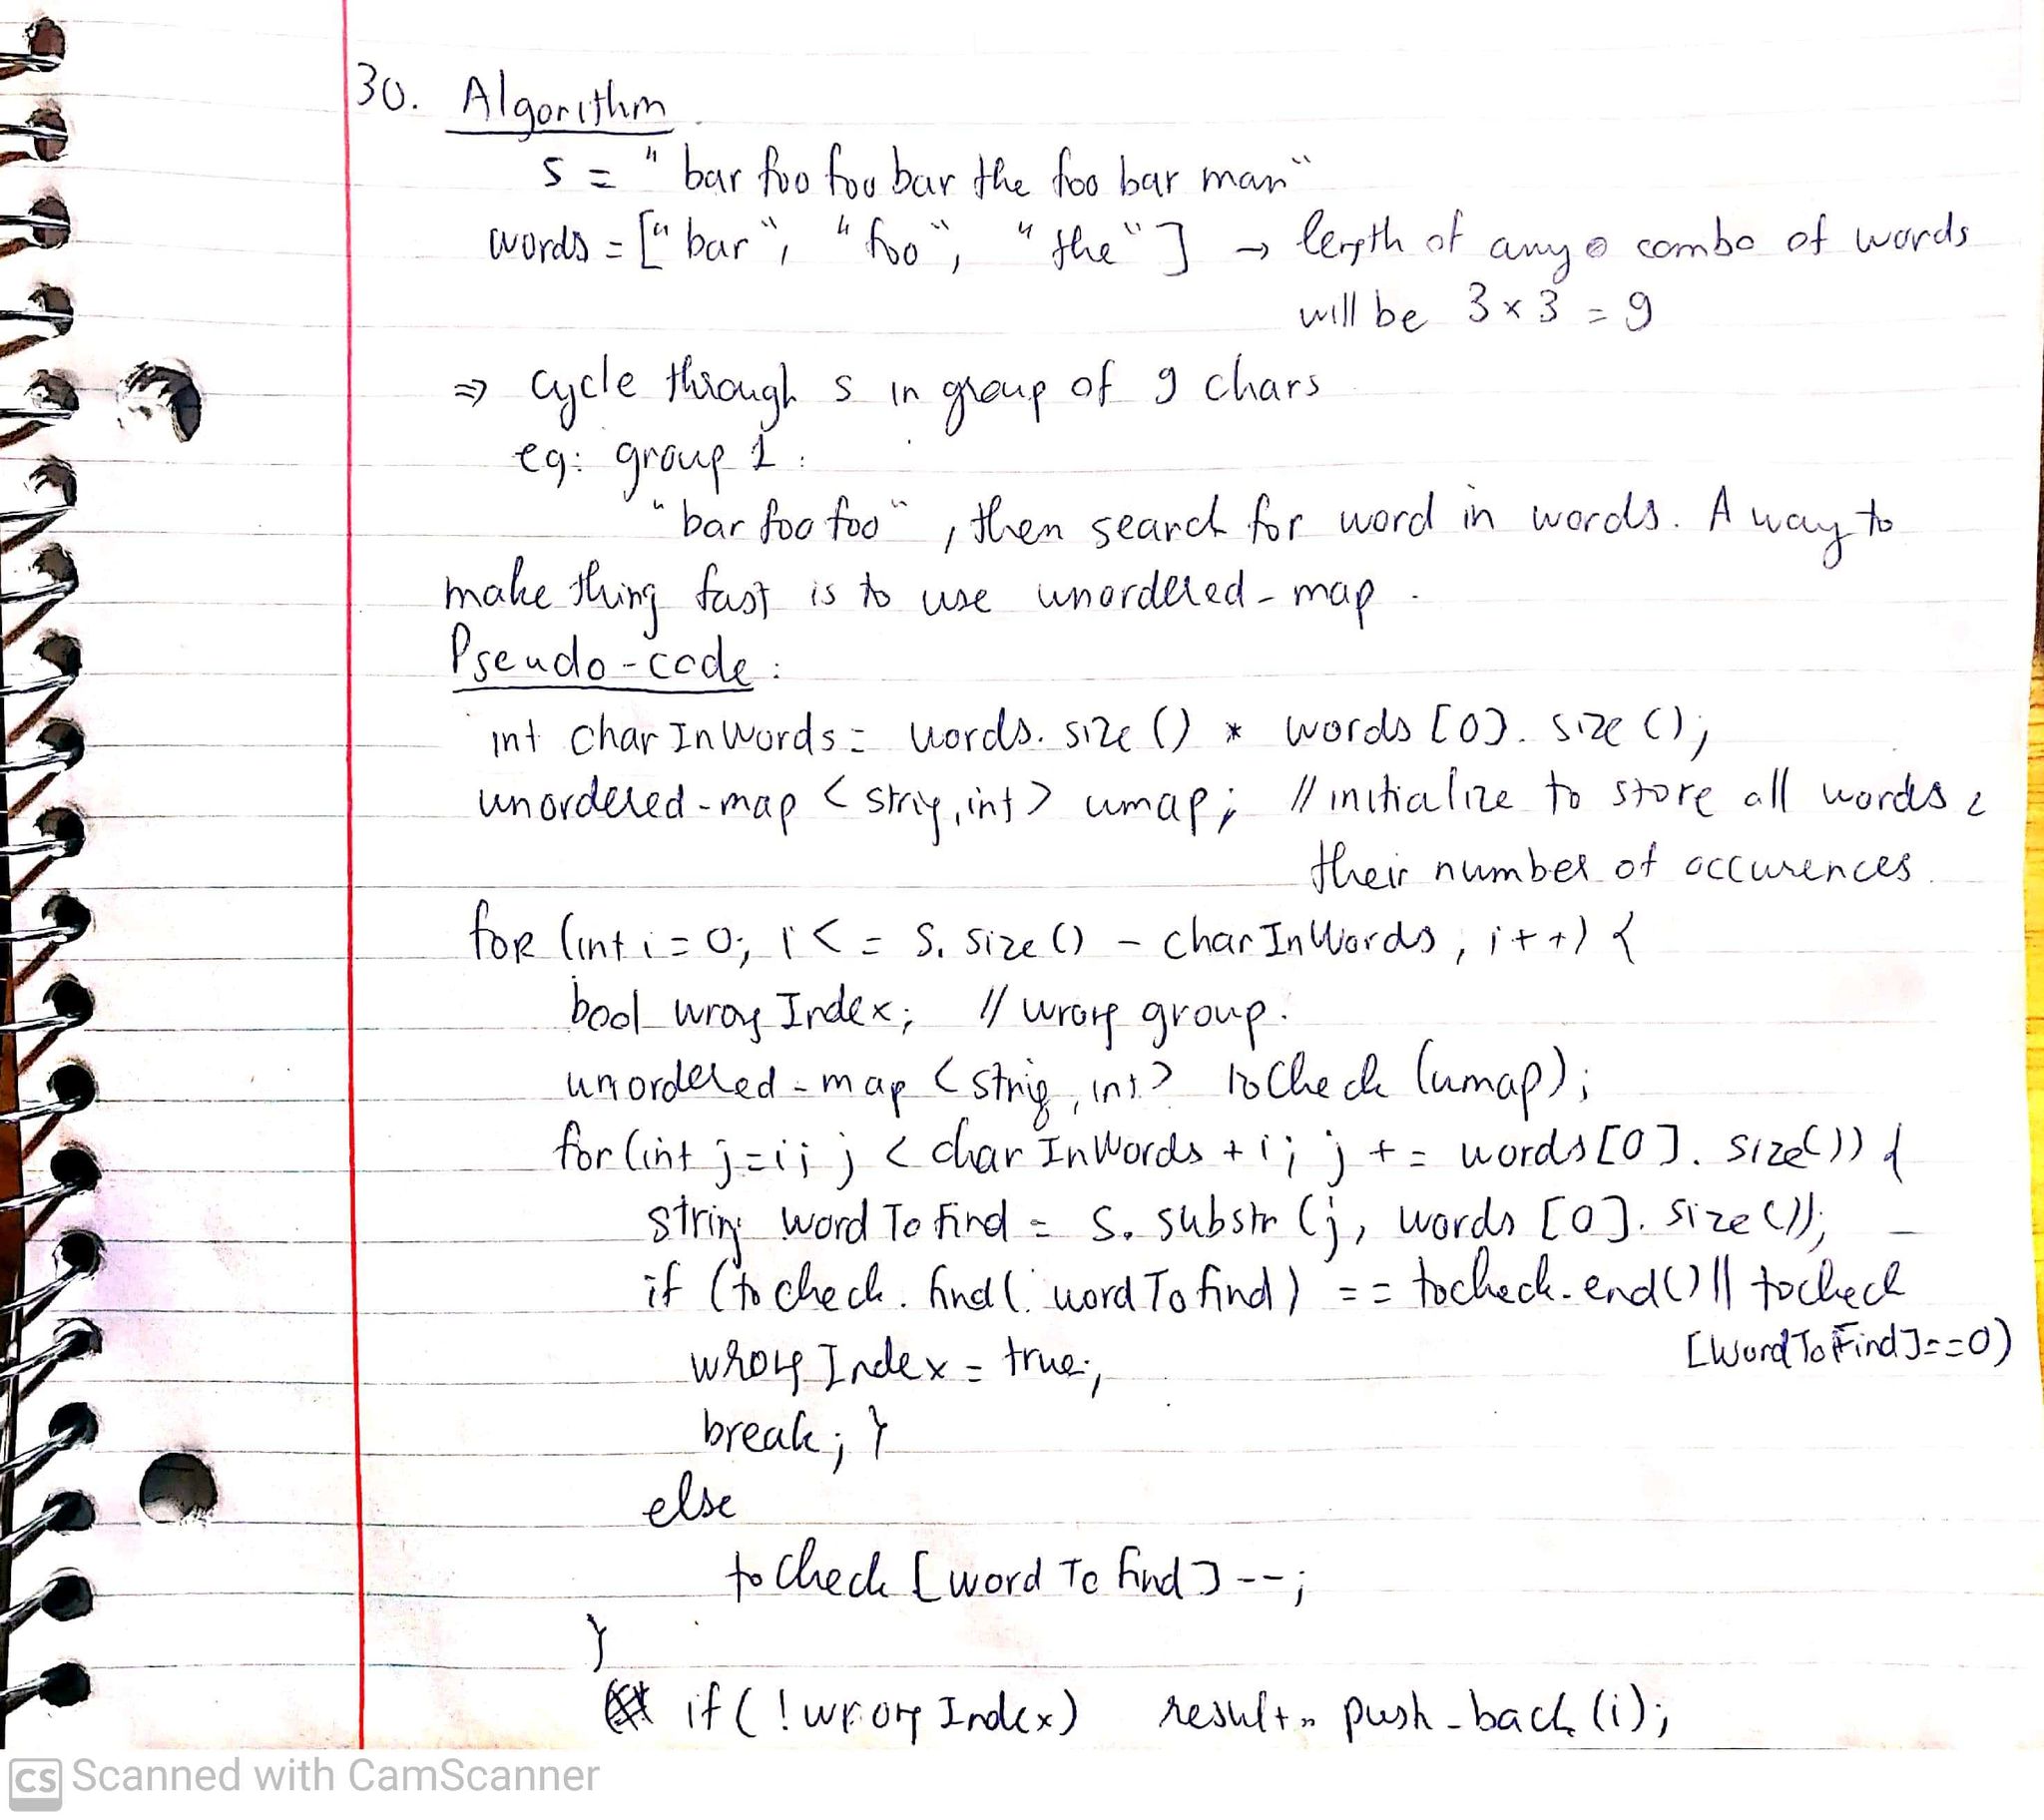 30. Algorithm
s = "bar foo foo bar the foo bar man"
words = ["bar", "foo", "the"] → length of any combo of words
will be 3 x 3 = 9
⇒ cycle through s in group of 9 chars
eg: group 1:
"bar foo foo", then search for word in words. A way to
make thing fast is to use unordered-map.
Pseudo-code:
int charInWords = words.size() * words[0].size();
unordered-map <string, int> umap; // initialize to store all words &
their number of occurences.
for (int i = 0; i <= s.size() - charInWords, i++) {
bool wrongIndex; // wrong group.
unordered-map <string, int> toCheck (umap);
for (int j=i; j < charInWords + i; j += words[0].size()) {
string wordToFind = s.substr(j, words[0].size());
if (tocheck.find(wordTofind) == tocheck.end() || tocheck
[WordToFind]==0)
wrongIndex = true;
break; }
else
toCheck [wordTofind]--;
}
if (!wrongIndex) result.push-back(i);
CS Scanned with CamScanner